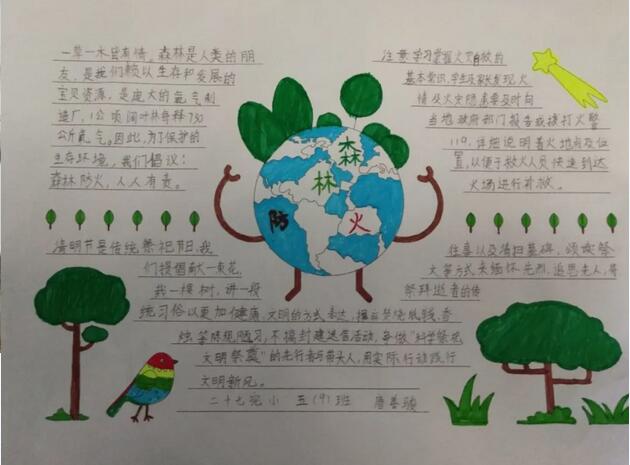 一草一木皆有情。森林是人类的朋
友，是我们赖以生存和发展的
宝贝资源，是庞大的氧气制
造厂，1公顷阔叶林每释730
公斤氧气。因此，为了保护的
生存环境，我们倡议：
森林防火，人人有责。
注意学习掌握火灾自救的
基本常识，学生及家长发现火
情及火灾隐患要及时向
当地政府部门报告或拨打火警
119，详细说明着火地点及位
置，以便于救火人员快速到达
火场进行补救。
森
林
防
火
清明节是传统祭祀节日，我
们提倡献一束花，
我一棵树，讲一段
往事以及清扫墓碑，颂读祭
文等方式来缅怀先烈，追思先人，等
祭拜逝者的传
统习俗以更加健康，文明的方式表达，摒去焚烧纸钱，香
烛等陈规陋习，不搞封建迷信活动，争做“科学祭祀
文明祭奠”的先行者与带头人，用实际行动践行
文明新风。
二十七完小 五(9)班 唐善